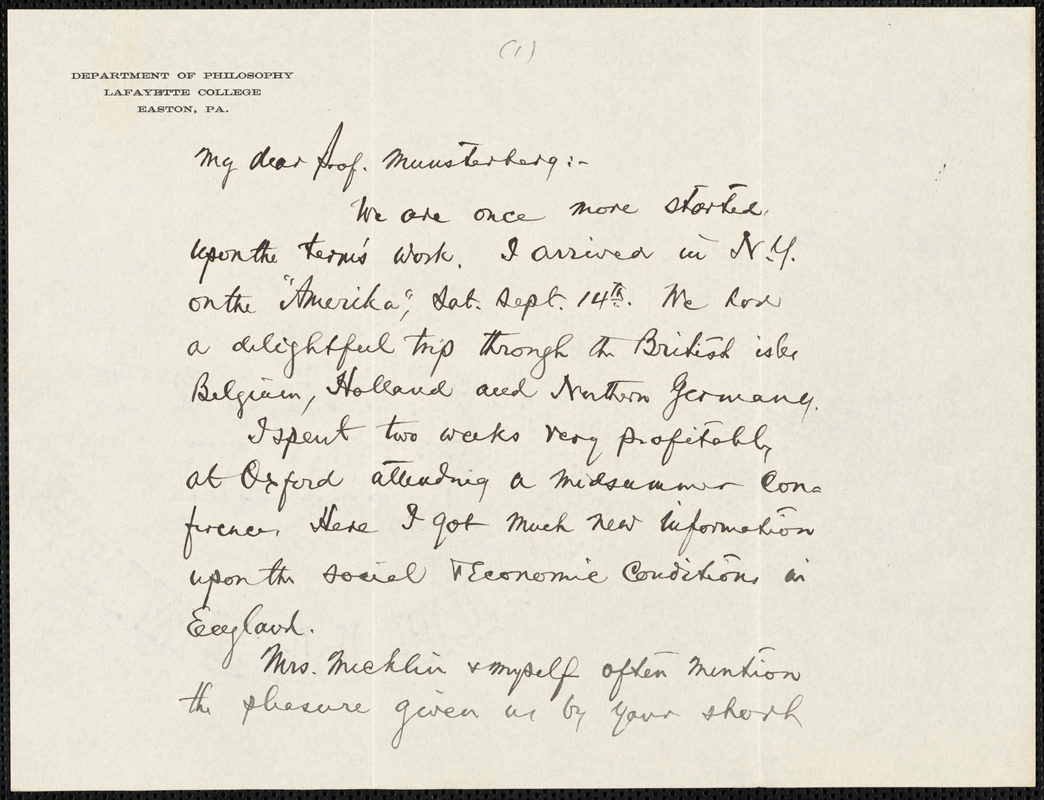 (1)
DEPARTMENT OF PHILOSOPHY
LAFAYETTE COLLEGE
EASTON, PA.
My dear Prof. Munsterberg:-
We are once more started
upon the term's work. I arrived in N.Y.
on the "Amerika", Sat. Sept. 14th. We had
a delightful trip through the British isles
Belgium, Holland and Northern Germany.
I spent two weeks very profitably
at Oxford attending a midsummer Con=
ference. Here I got much new information
upon the social & Economic Conditions in
England.
Mrs. Mecklin & myself often mention
the pleasure given us by your short